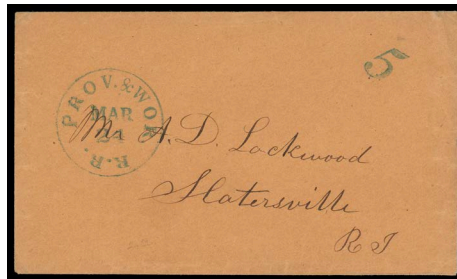 5
PROV. & WOR. R.R.
MAR
24
Mr A. D. Lockwood
Slatersville
R I